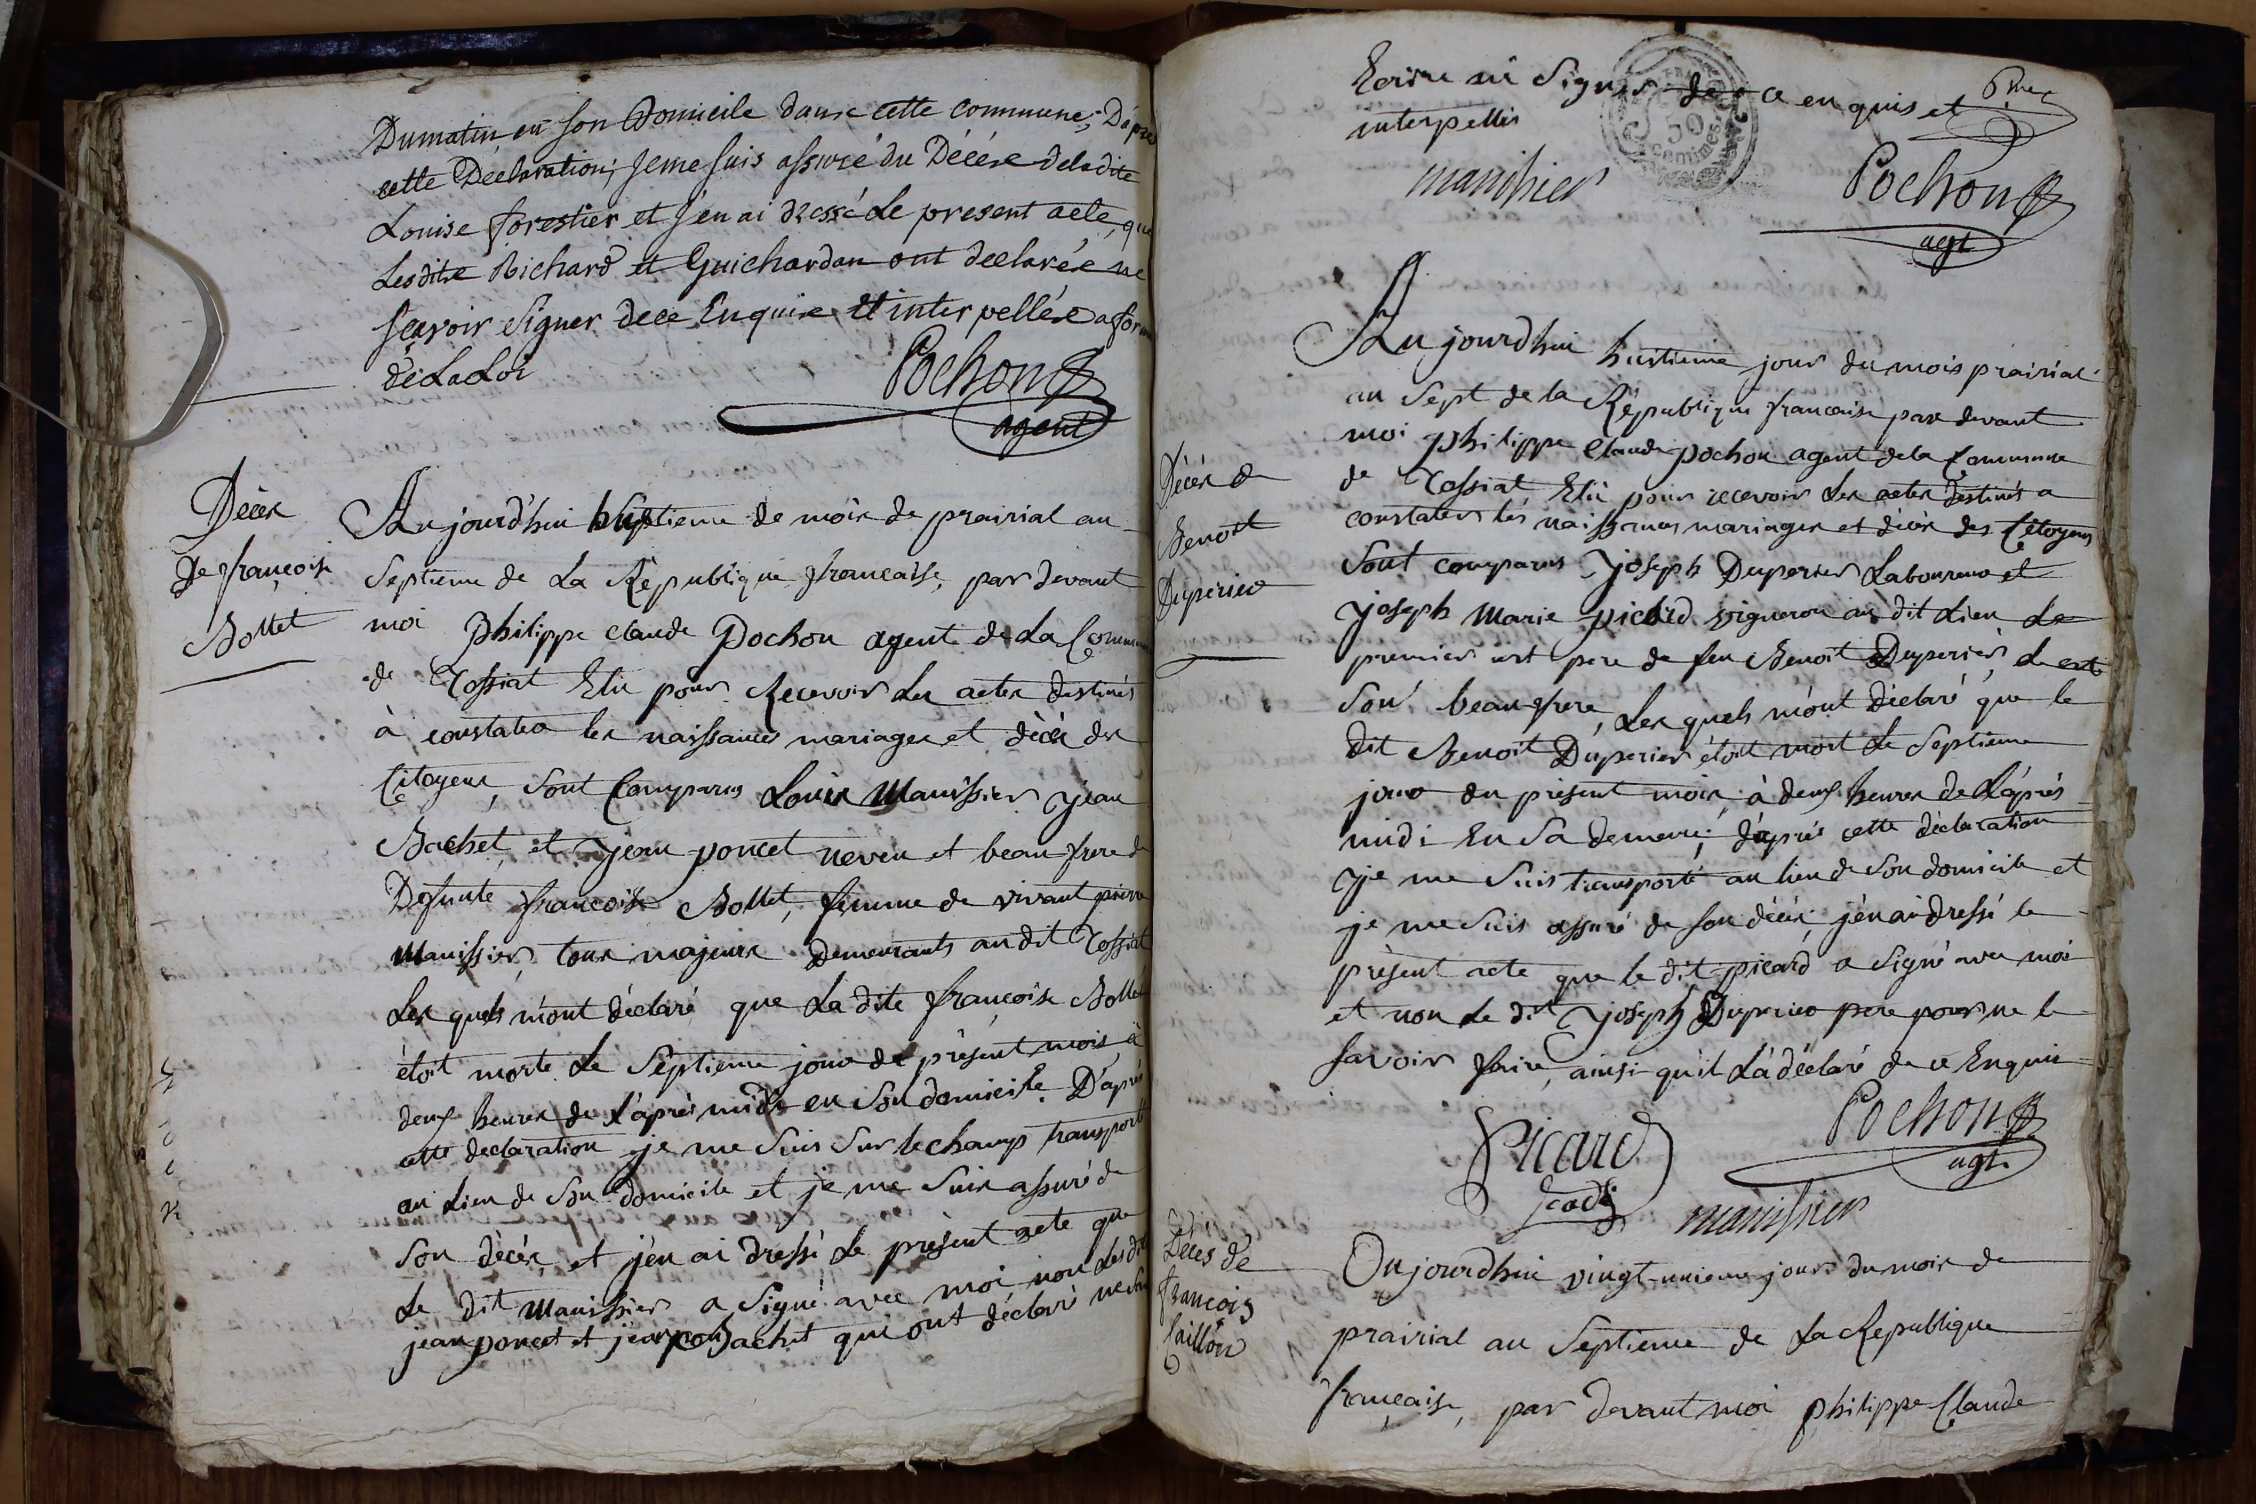 Dumatin en son Domicile danse cette commune, D'apres
cette Declaration, Jeme suis assuré du Décése deladite
Louise forestier et J'en ai dressé Le present acte, que
Lesdite Richard et Guichardan ont declarése ne
sçavoir signer dece Enquise et interpellése a forme
de La Loi
Pochon
agent
Décès
De françoise
Bollet
Aujourd'hui huitieme de mois de prairial an
Septieme de La République française, par devant
moi philippe claude Pochon agent de La Commune
de Tossiat Elu pour Recevoir les actes destinés
à constater les naissances mariages et décès des
Citoyens, sont Comparus Louis Manissier jean
Bachet et jean poncet neveu et beau frere de
Defunte françoise Bollet, femme de vivant pierre
Manissier, tous majeurs demeurants audit Tossiat
Les quels m'ont déclaré que La dite françoise Bollet
étoit morte Le Septieme jour de présent mois à
deux heures de L'après midi en son domicile. D'après
cette declaration je me suis sur le champs transporté
au Lieu de son domicile et je me suis assuré de
son décès, et j'en ai dressé Le présent acte que
Le dit Manissier a signé avec moi non Les dits
jean poncet et jean Bachet qui ont déclaré ne
Ecrire ni Signer de ce enquis et
interpellés
manihier
Pochon
agt
Aujourdhui huitieme jour du mois prairial
an Sept de la République française par devant
moi philippe Claude pochon agent de la Commune
de Tossiat Elu pour recevoir les actes destinés a
constater les naissances mariages et décès des Citoyens
Décès de
Benoit
Duperier
Sont comparus joseph Duperier Laboureur et
joseph Marie picard vigneron au dit Lieu Le
premier est pere de feu Benoit Duperier, Le
son beau frere, Les quels m'ont déclaré que le
dit Benoit Duperier étoit mort Le Septieme
jour du présent mois à deux heures de L'après
midi En sa demeure, d'après cette déclaration
je me suis transporté au lieu de son domicile et
je me suis assuré de son décès, j'en ai dressé le
présent acte que le dit picard a signé avec moi
et non Le dit joseph Duperier pere pour ne le
savoir faire, ainsi qu'il L'a déclaré de ce Enquis
Picard
Pochon
agt.
manissier
Décès de
françois
Caillon
Oujourdhui vingt-unieme jour du mois de
prairial an Septieme de La Republique
française, par devant moi philippe Claude